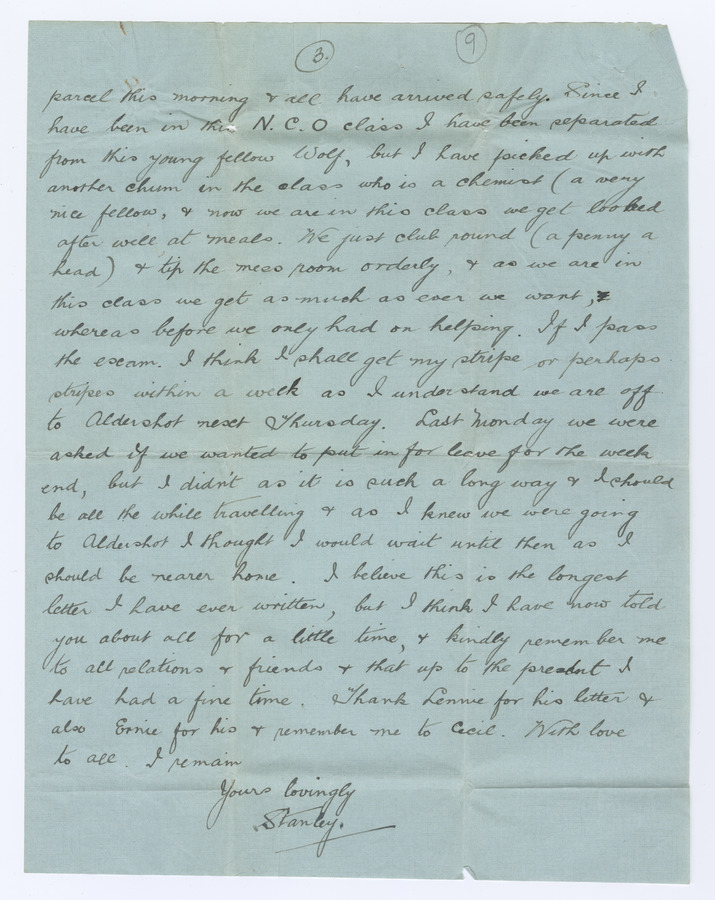 3.
9
parcel this morning & all have arrived safely. Since I
have been in this N.C.O class I have been separated
from this young fellow Wolf, but I have picked up with
another chum in the class who is a chemist (a very
nice fellow, & now we are in this class we get looked
after well at meals. We just club round (a penny a
head) & tip the mess room orderly, & as we are in
this class we get as much as ever we want,
whereas before we only had on helping. If I pass
the exam. I think I shall get my stripe or perhaps
stripes within a week as I understand we are off
to Aldershot next Thursday. Last Monday we were
asked if we wanted to put in for leave for the week
end, but I didn't as it is such a long way & I should
be all the while travelling & as I knew we were going
to Aldershot I thought I would wait until then as I
should be nearer home. I believe this is the longest
letter I have ever written, but I think I have now told
you about all for a little time, & kindly remember me
to all relations & friends & that up to the present I
have had a fine time. Thank Lennie for his letter &
also Ernie for his & remember me to Cecil. With love
to all. I remain
Yours lovingly
Stanley.